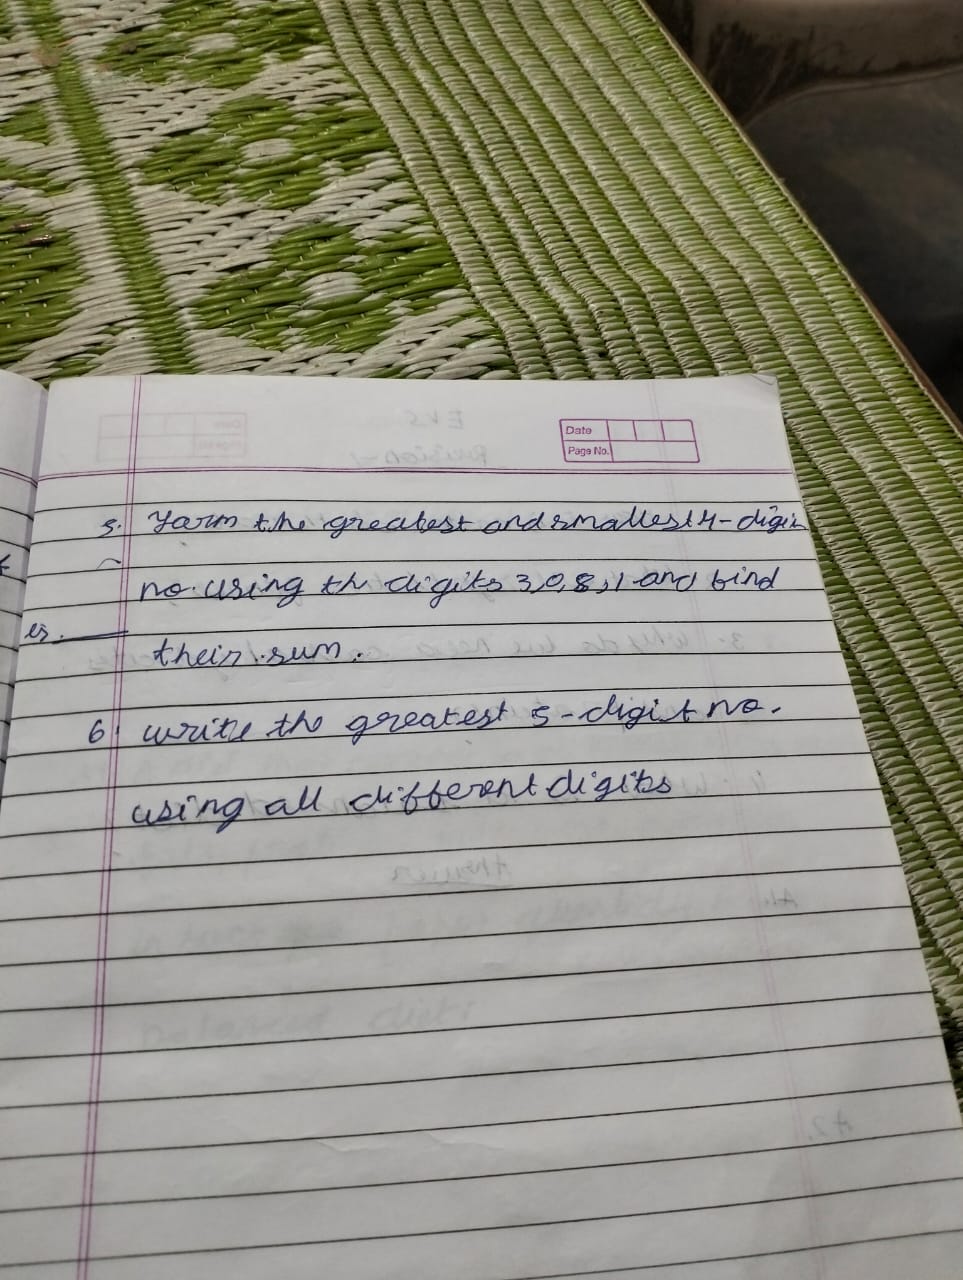 Date
Page No.
5. Form the greatest and smallest 4-digit
no. using th digits 3,0,8,1 and find
their sum.
6. write the greatest 5-digit no.
using all different digits